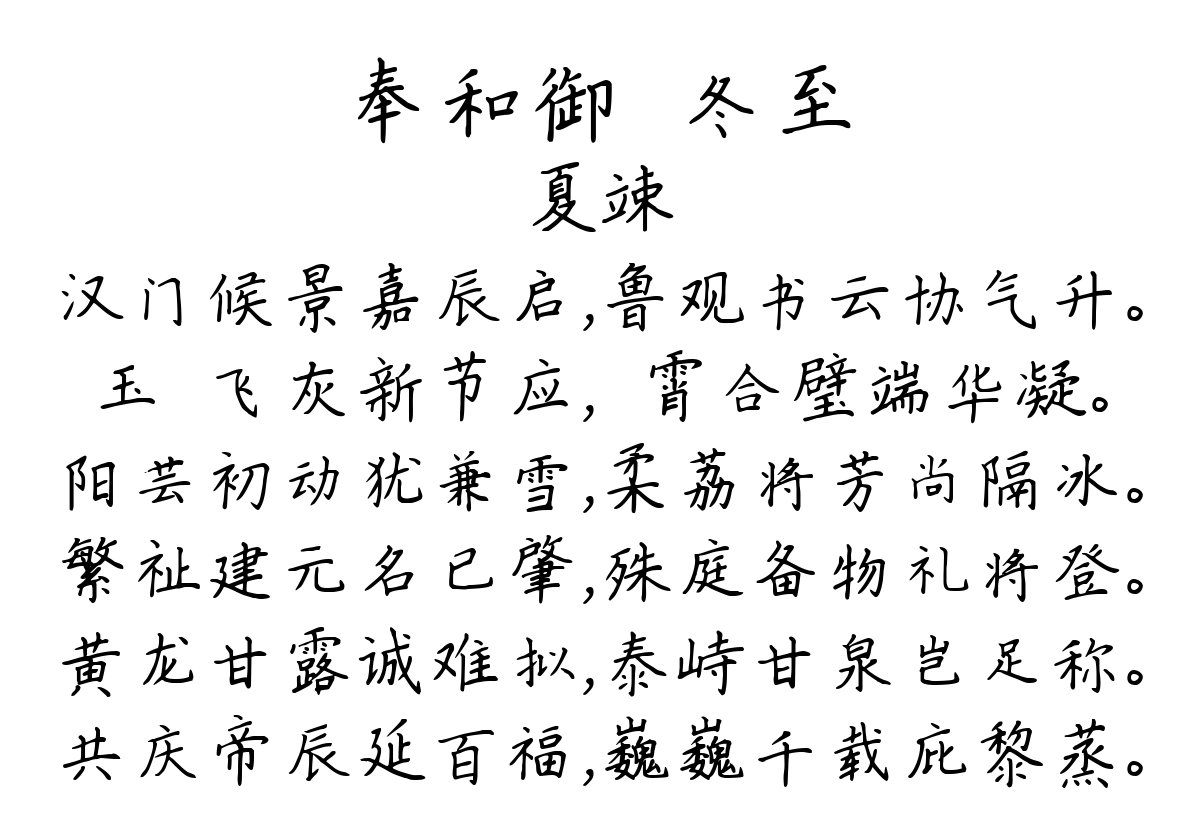 奉和御 冬至
夏竦
汉门候景嘉辰启,鲁观书云协气升。
玉 飞灰新节应, 霄合璧端华凝。
阳芸初动犹兼雪,柔荔将芳尚隔冰。
繁祉建元名已肇,殊庭备物礼将登。
黄龙甘露诚难拟,泰峙甘泉岂足称。
共庆帝辰延百福,巍巍千载庇黎蒸。